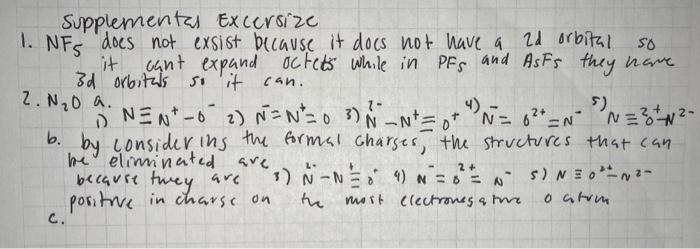 Supplemental Excersize
1. NF5 does not exsist because it does not have a 2d orbital so
it cant expand octets while in PF5 and AsF5 they have
3d orbitals so it can.
2. N2O a.
1) N≡N⁺-O⁻ 2) N⁻=N⁺=O 3) N²⁻-N⁺≡O⁺ 4) N⁻=O²⁺=N⁻ 5) N≡O³⁺-N²⁻
b. by considering the formal charges, the structures that can
be eliminated are
because they are 3) N²⁻-N≡O⁺ 4) N⁻=O²⁺=N⁻ 5) N≡O²⁺-N²⁻
positive in charge on the most electronegative O atom
c.